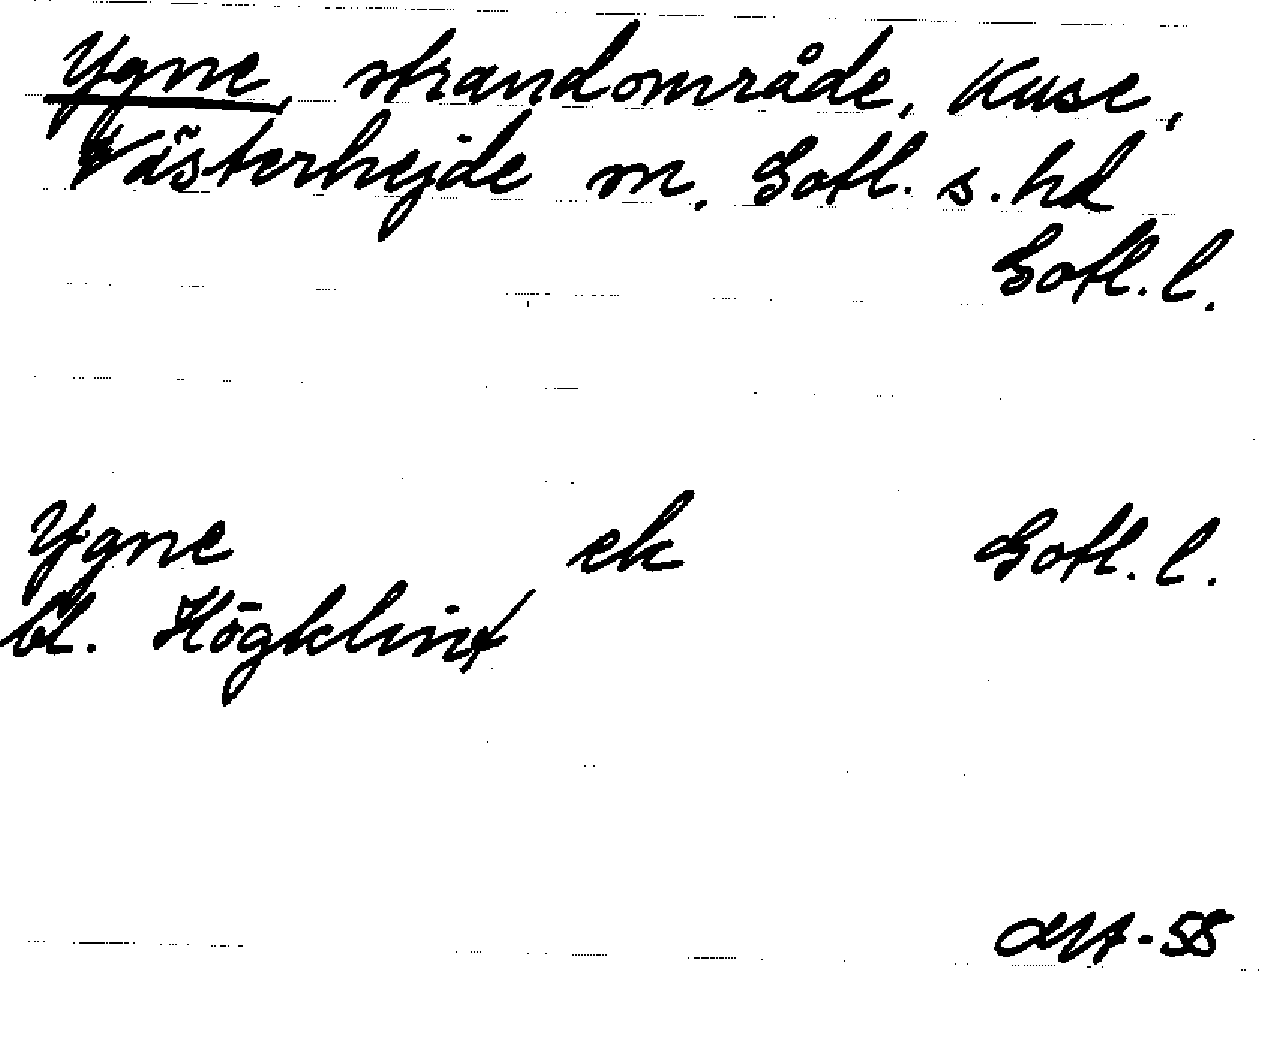 Ygne, strandområde, Kuse,
Västerhejde sn. Gotl. s. hd
Gotl. l.
Ygne ek Gotl. l.
bl. Högklint